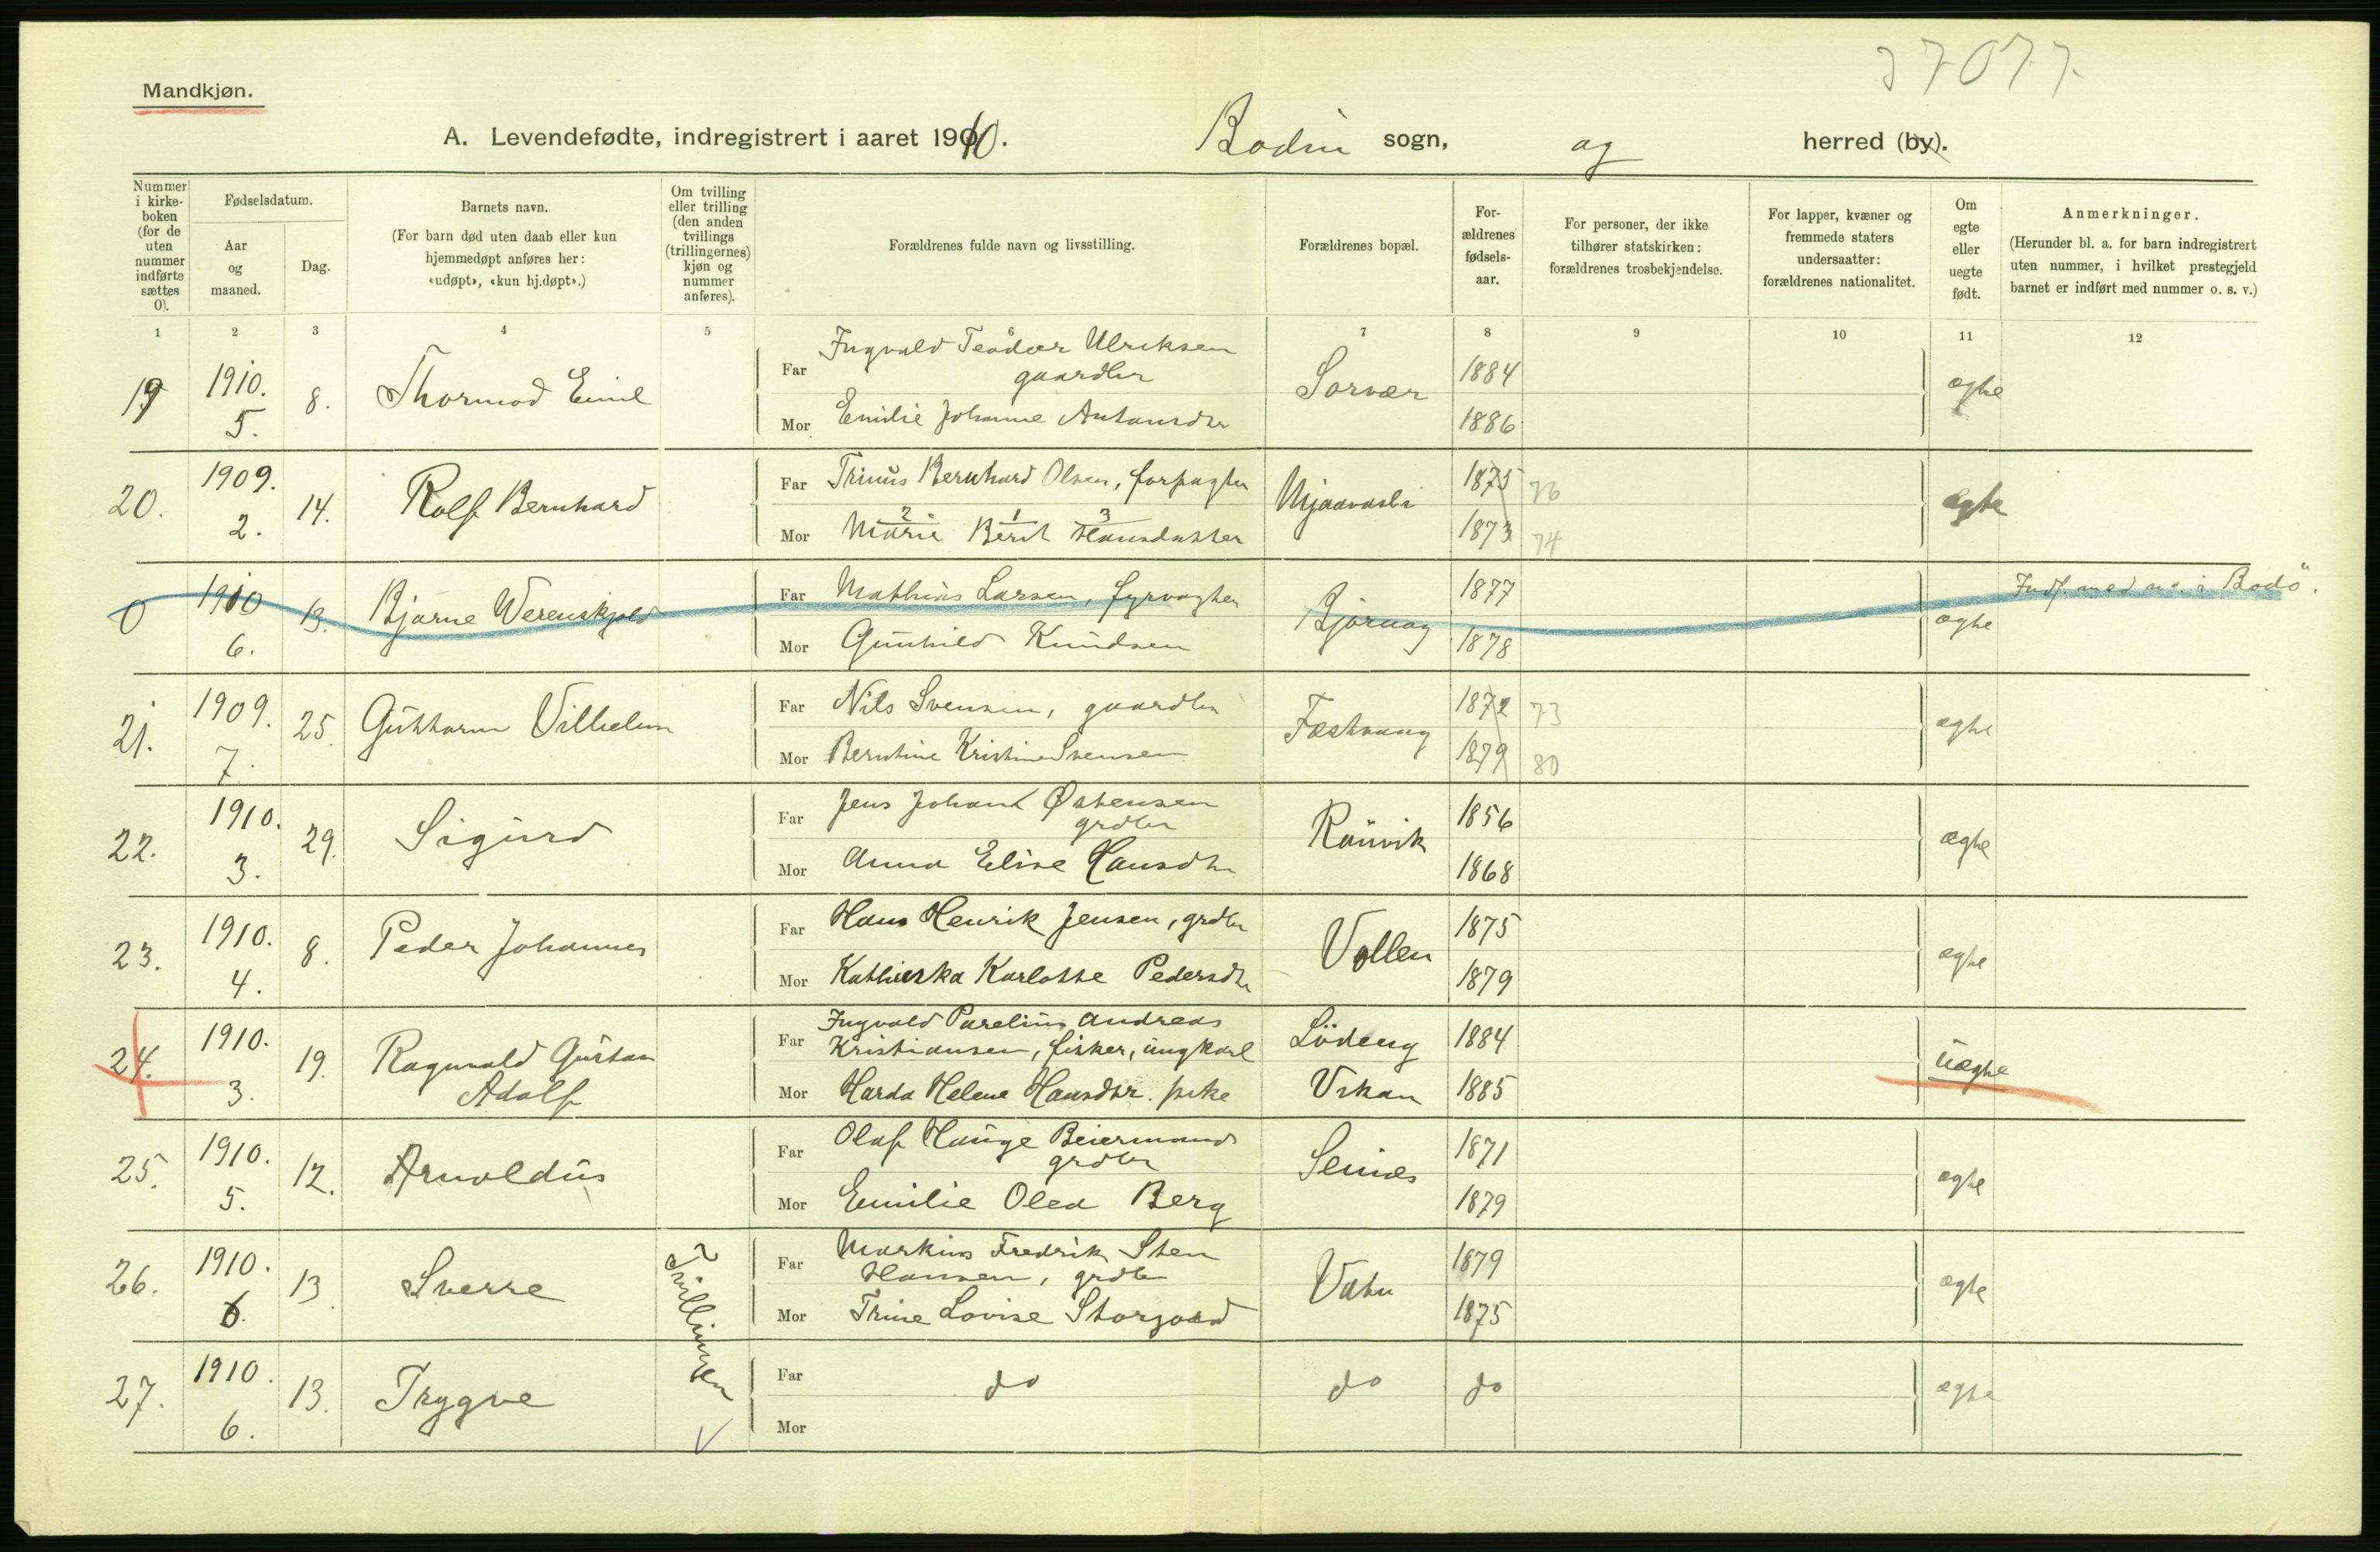 37077
Mandkjøn.
A. Levendefødte, indregistrert i aaret 1910. Bodin sogn, og herred (by).
Nummer i kirkeboken (for de uten nummer indførte sættes 0).
Fødselsdatum.
Aar og maaned.
Dag.
Barnets navn.
(For barn død uten daab eller kun hjemmedøpt anføres her: «udøpt», «kun hj.døpt».)
Om tvilling eller trilling (den anden tvillings (trillingernes) kjøn og nummer anføres).
Forældrenes fulde navn og livsstilling.
Forældrenes bopæl.
Forældrenes fødselsaar.
For personer, der ikke tilhører statskirken: forældrenes trosbekjendelse.
For lapper, kvæner og fremmede staters undersaatter: forældrenes nationalitet.
Om egte eller uegte født.
Anmerkninger.
(Herunder bl. a. for barn indregistrert uten nummer, i hvilket prestegjeld barnet er indført med nummer o. s. v.)
1 2 3 4 5 6 7 8 9 10 11 12
19 1910. 5. 8. Thormod Emil
Far Ingvald Teodor Ulriksen gaardbr Sørvær 1884 ægte
Mor Emilie Johanne Antonsdtr 1886
20. 1909. 2. 14. Rolf Bernhard
Far Trinus Bernhard Olsen, forpagter 1875 76 ægte
Mor Marie Berit Hansdatter 1873 74
2 1 3
0 1910 6. 13. Bjarne Werenskjold
Far Mathias Larsen, fyrvogter 1877 ægte Indf. med no. i Bodø.
Mor Gunhild Knudsen 1878
21. 1909. 7. 25. Guttorm Vilhelm
Far Nils Svensen, gaardbr Fæstvaag 1872 73 ægte
Mor Berntine Kristine Svensen 1879 80
22. 1910. 3. 29. Sigurd
Far Jens Johan Østensen grdbr Rønvik 1856 ægte
Mor Anna Elise Hansdtr 1868
23. 1910. 4. 8. Peder Johannes
Far Hans Henrik Jensen, grdbr Vollen 1875 ægte
Mor Kathinka Karlotte Pedersdtr 1879
24. 1910. 3. 19. Ragnvald Gustav Adolf
Far Ingvald Parelius Andreas Kristiansen, fisker, ungkarl Løding 1884 uægte
Mor Harda Helene Hansdtr. pike Vikan 1885
25. 1910. 5. 12. Arnoldus
Far Olaf Hauge Beiermand grdbr Seines 1871 ægte
Mor Emilie Olea Berg 1879
26. 1910. 6. 13 Sverre Tvillinger
Far Markus Fredrik Sten Hansen, grdbr 1879 ægte
Mor Trine Lovise Storjord 1875
27. 1910. 6. 13. Trygve
Far do do do ægte
Mor